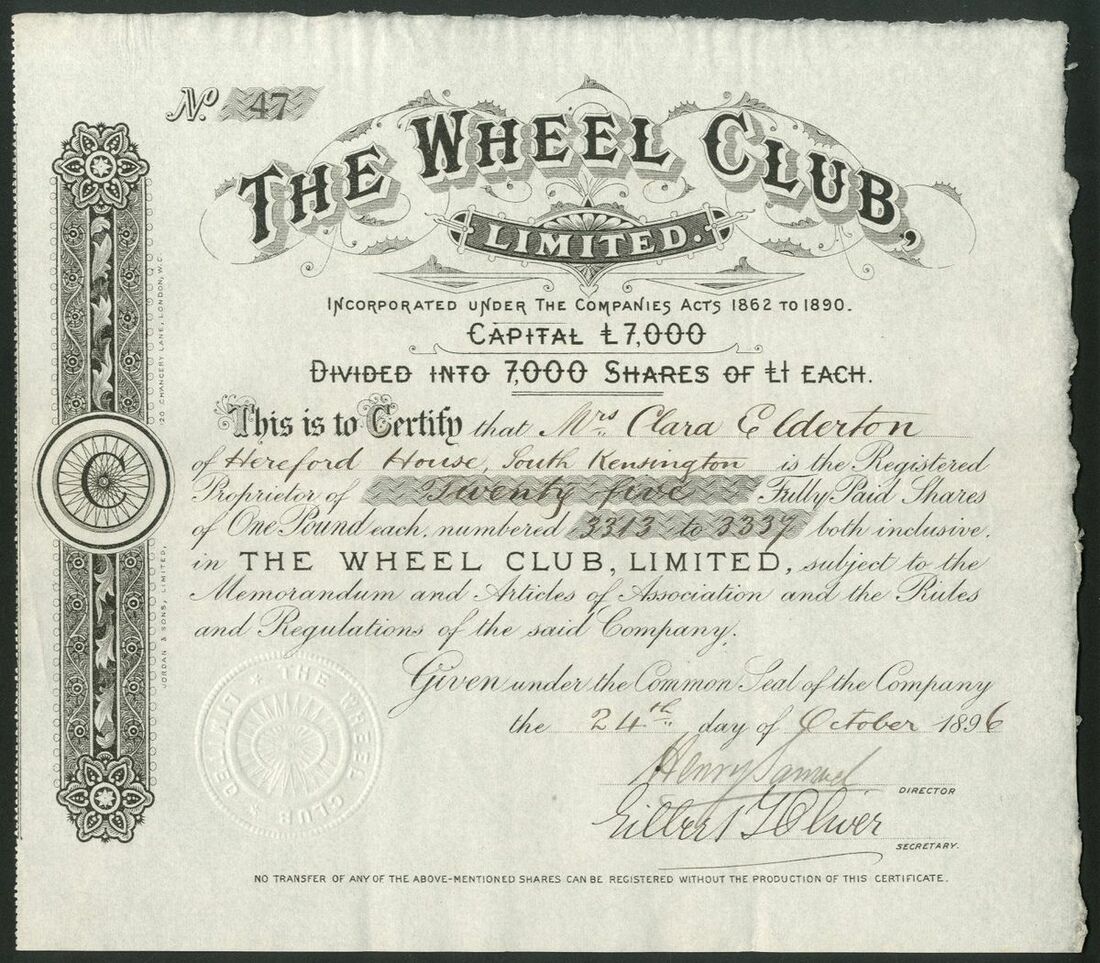 No. 47
THE WHEEL CLUB,
LIMITED.
INCORPORATED UNDER THE COMPANIES ACTS 1862 TO 1890.
CAPITAL £7,000
DIVIDED INTO 7,000 SHARES OF £1 EACH.
This is to Certify that Mrs Clara Elderton
of Hereford House, South Kensington is the Registered
Proprietor of Twenty five Fully Paid Shares
of One Pound each, numbered 3313 to 3337 both inclusive,
in THE WHEEL CLUB, LIMITED, subject to the
Memorandum and Articles of Association and the Rules
and Regulations of the said Company.
Given under the Common Seal of the Company
the 24th day of October 1896
Henry Samuel
DIRECTOR
Gilbert J Oliver
SECRETARY.
NO TRANSFER OF ANY OF THE ABOVE-MENTIONED SHARES CAN BE REGISTERED WITHOUT THE PRODUCTION OF THIS CERTIFICATE.
C
JORDAN & SONS, LIMITED, 120 CHANCERY LANE, LONDON, W.C.
THE WHEEL CLUB LIMITED